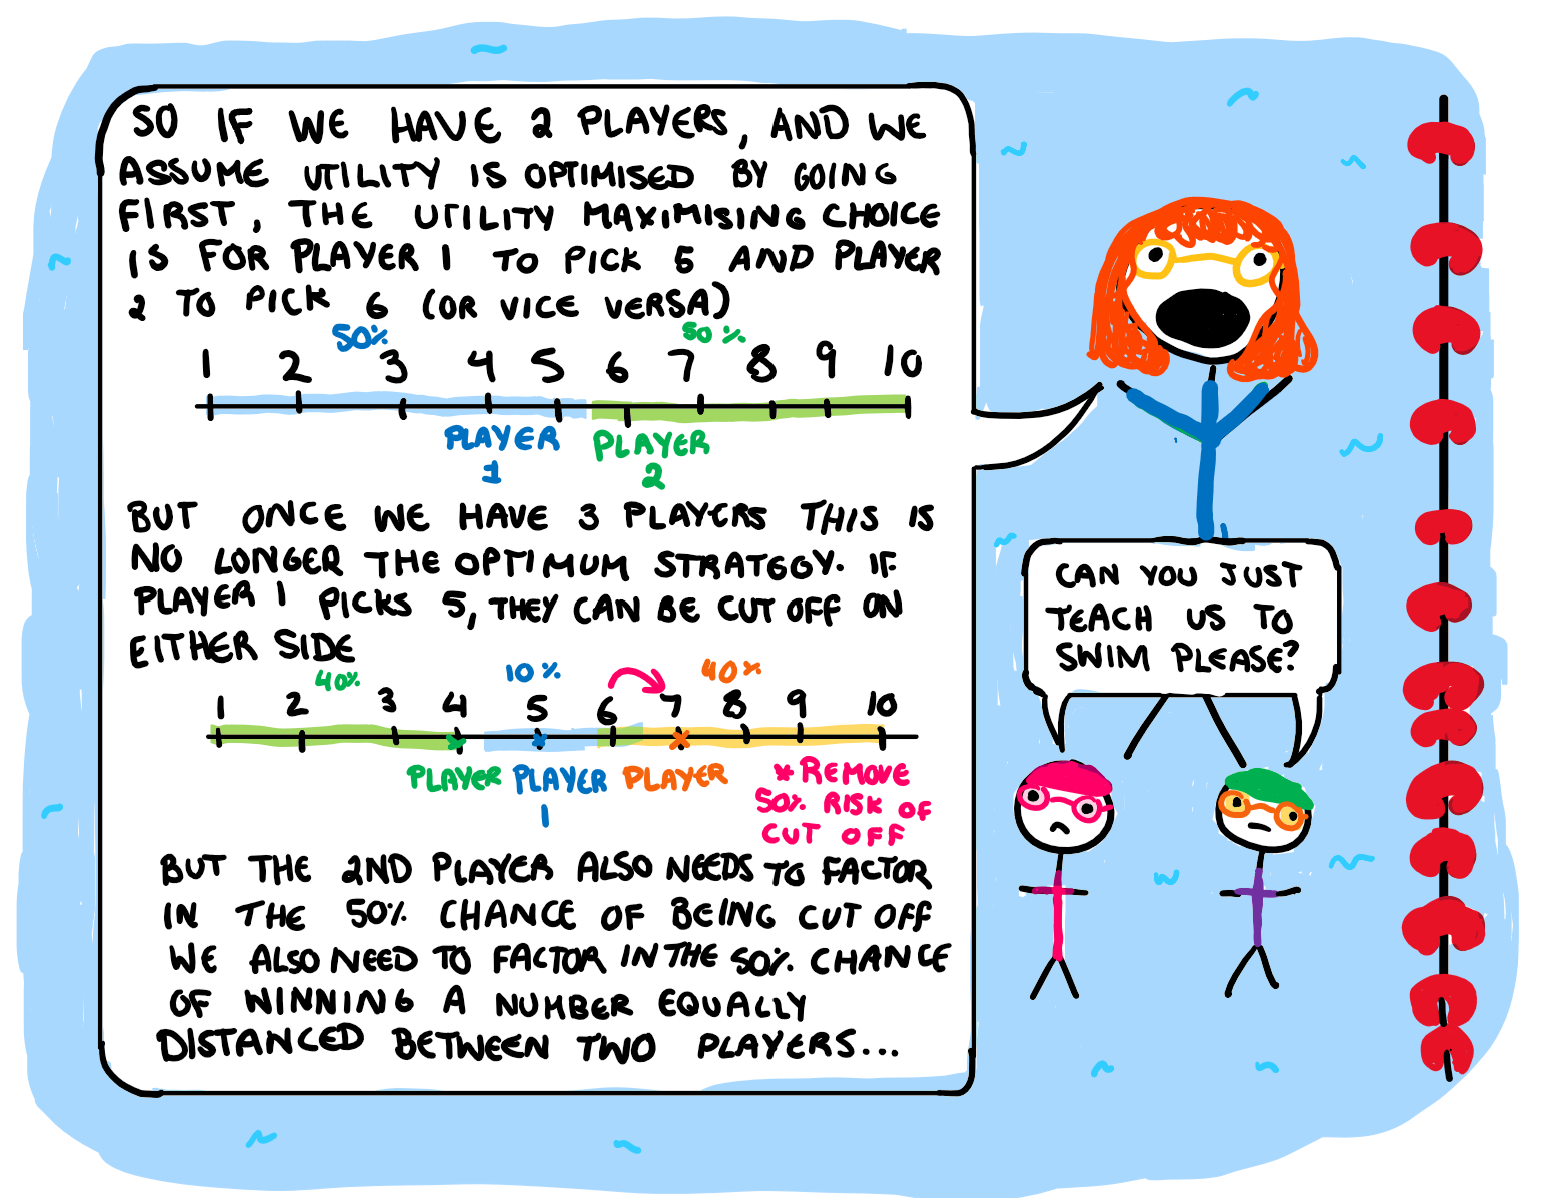 SO IF WE HAVE 2 PLAYERS, AND WE
ASSUME UTILITY IS OPTIMISED BY GOING
FIRST, THE UTILITY MAXIMISING CHOICE
IS FOR PLAYER 1 TO PICK 5 AND PLAYER
2 TO PICK 6 (OR VICE VERSA)
50% 50%
1 2 3 4 5 6 7 8 9 10
PLAYER 1
PLAYER 2
BUT ONCE WE HAVE 3 PLAYERS THIS IS
NO LONGER THE OPTIMUM STRATEGY. IF
PLAYER 1 PICKS 5, THEY CAN BE CUT OFF ON
EITHER SIDE
40% 10% 40%
1 2 3 4 5 6 7 8 9 10
PLAYER
PLAYER 1
PLAYER
* REMOVE
50% RISK OF
CUT OFF
BUT THE 2ND PLAYER ALSO NEEDS TO FACTOR
IN THE 50% CHANCE OF BEING CUT OFF
WE ALSO NEED TO FACTOR IN THE 50% CHANCE
OF WINNING A NUMBER EQUALLY
DISTANCED BETWEEN TWO PLAYERS...
CAN YOU JUST
TEACH US TO
SWIM PLEASE?